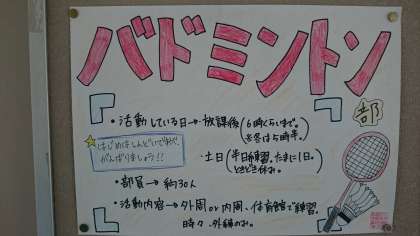 バドミントン
部
・活動している日→放課後(6時ぐらいまで。
※冬は5時半。)
はじめはしんどいですが、
がんばりましょう!!
・土日(半日練習。たまに1日。
ときどき休み。)
・部員→約30人
・活動内容→外周or内周、体育館で練習。
時々、外練のみ。